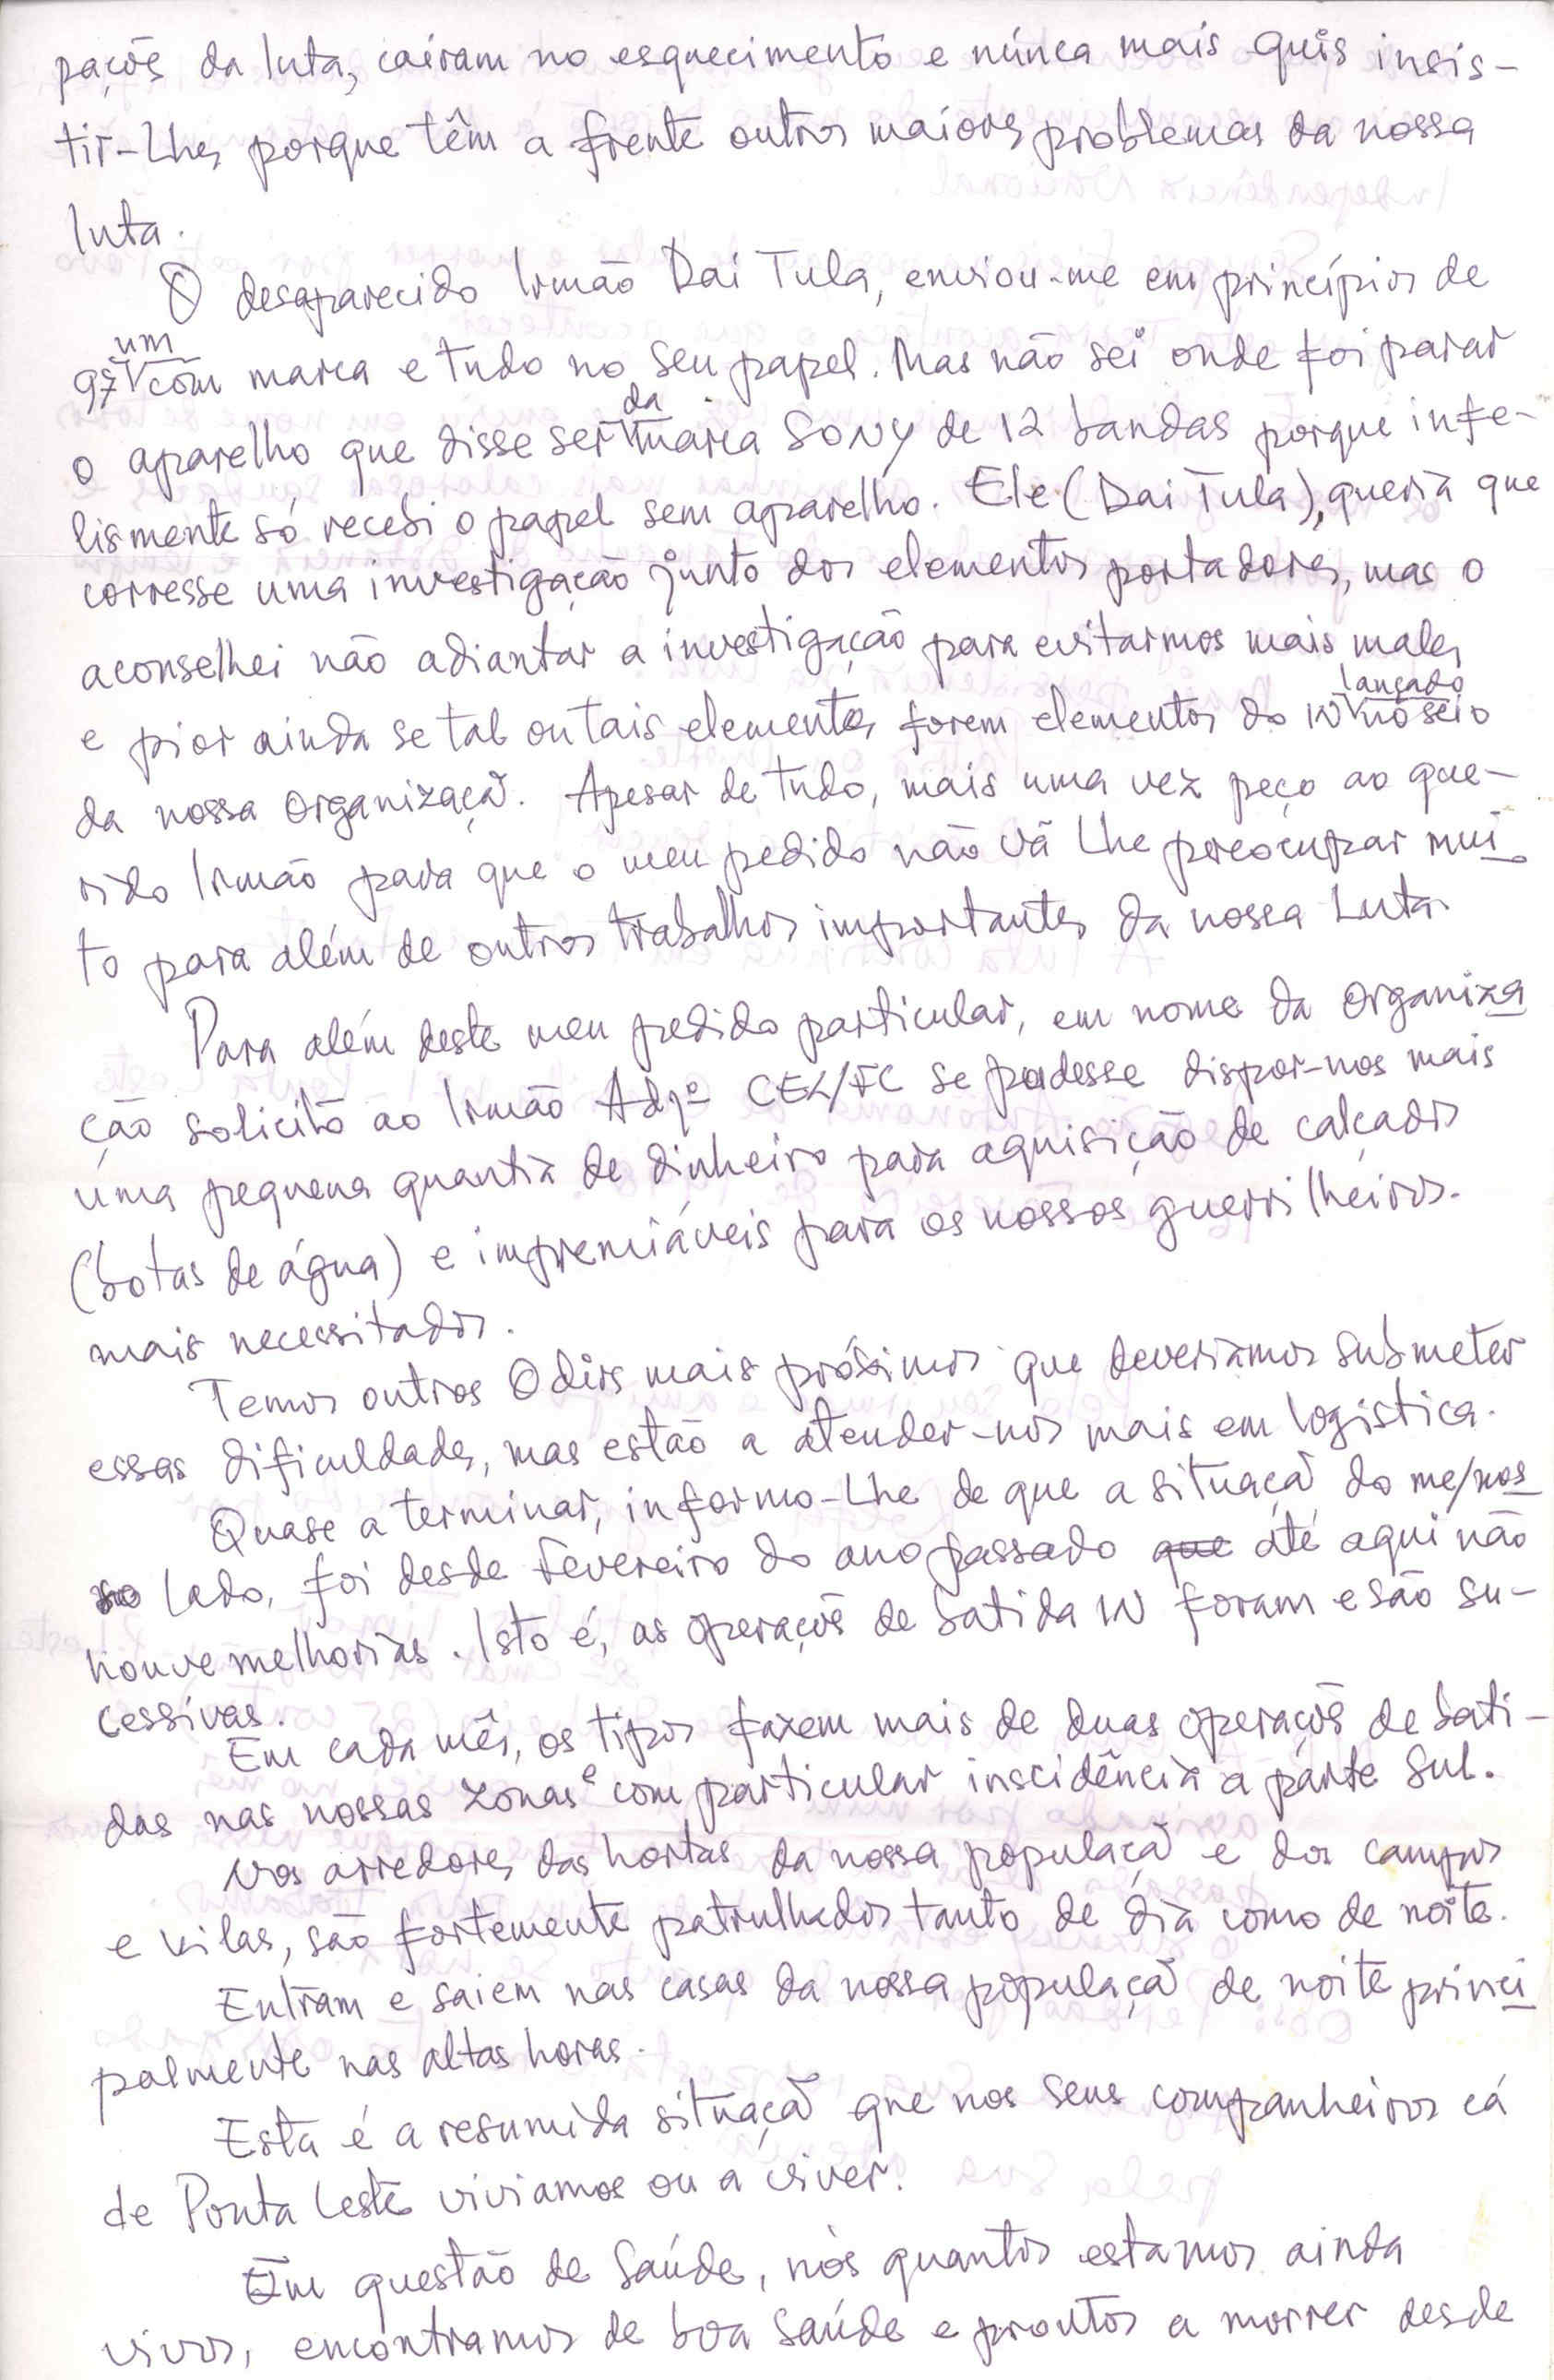 pações da luta, cairam no esquecimento e núnca mais quis insis-
tir-Lhes porque têm a frente outros maiores problemas da nossa
luta.
O desaparecido Irmão Dai Tula, enviou-me em princípios de
97 um com marca e tudo no seu papel. Mas não sei onde foi parar
o aparelho que disse ser da marca SONY de 12 bandas porque infe-
lismente só recebi o papel sem aparelho. Ele (Dai Tula), queria que
corresse uma investigação junto dos elementos portadores, mas o
aconselhei não adiantar a investigação para evitarmos mais males
e pior ainda se tal ou tais elementos forem elementos do IN lançado no seio
da nossa organização. Apesar de tudo, mais uma vez peço ao que-
rido Irmão para que o meu pedido não vá Lhe preocupar mui
to para além de outros trabalhos importantes da nossa Luta.
Para além deste meu pedido particular, em nome da organiza
ção solicito ao Irmão Adjº CEL/FC se pudesse dispor-nos mais
uma pequena quantia de dinheiro para aquisição de calçados
(botas de água) e impremiáveis para os nossos guerrilheiros.
mais necessitados.
Temos outros Odirs mais próximos que deveriamos submeter
essas dificuldades, mas estão a atender-nos mais em logistica.
Quase a terminar, informo-Lhe de que a situação do me/nos
so lado, foi desde Fevereiro do ano passado que até aqui não
houve melhorias. Isto é, as operações de batida IN foram e são su-
cessívas.
Em cada mês, os tipos fazem mais de duas operações de bati-
das nas nossas zonas e com particular inscidência a parte Sul.
Nos arredores das hortas da nossa população e dos campos
e vilas, são fortemente patrulhados tanto de dia como de noite.
Entram e saiem nas casas da nossa população de noite princi
palmente nas altas horas.
Esta é a resumida situação que nos seus companheiros cá
de Ponta Leste viviamos ou a viver.
Em questão de Saúde, nós quantos estamos ainda
vivos, encontramos de boa Saúde e prontos a morrer desde